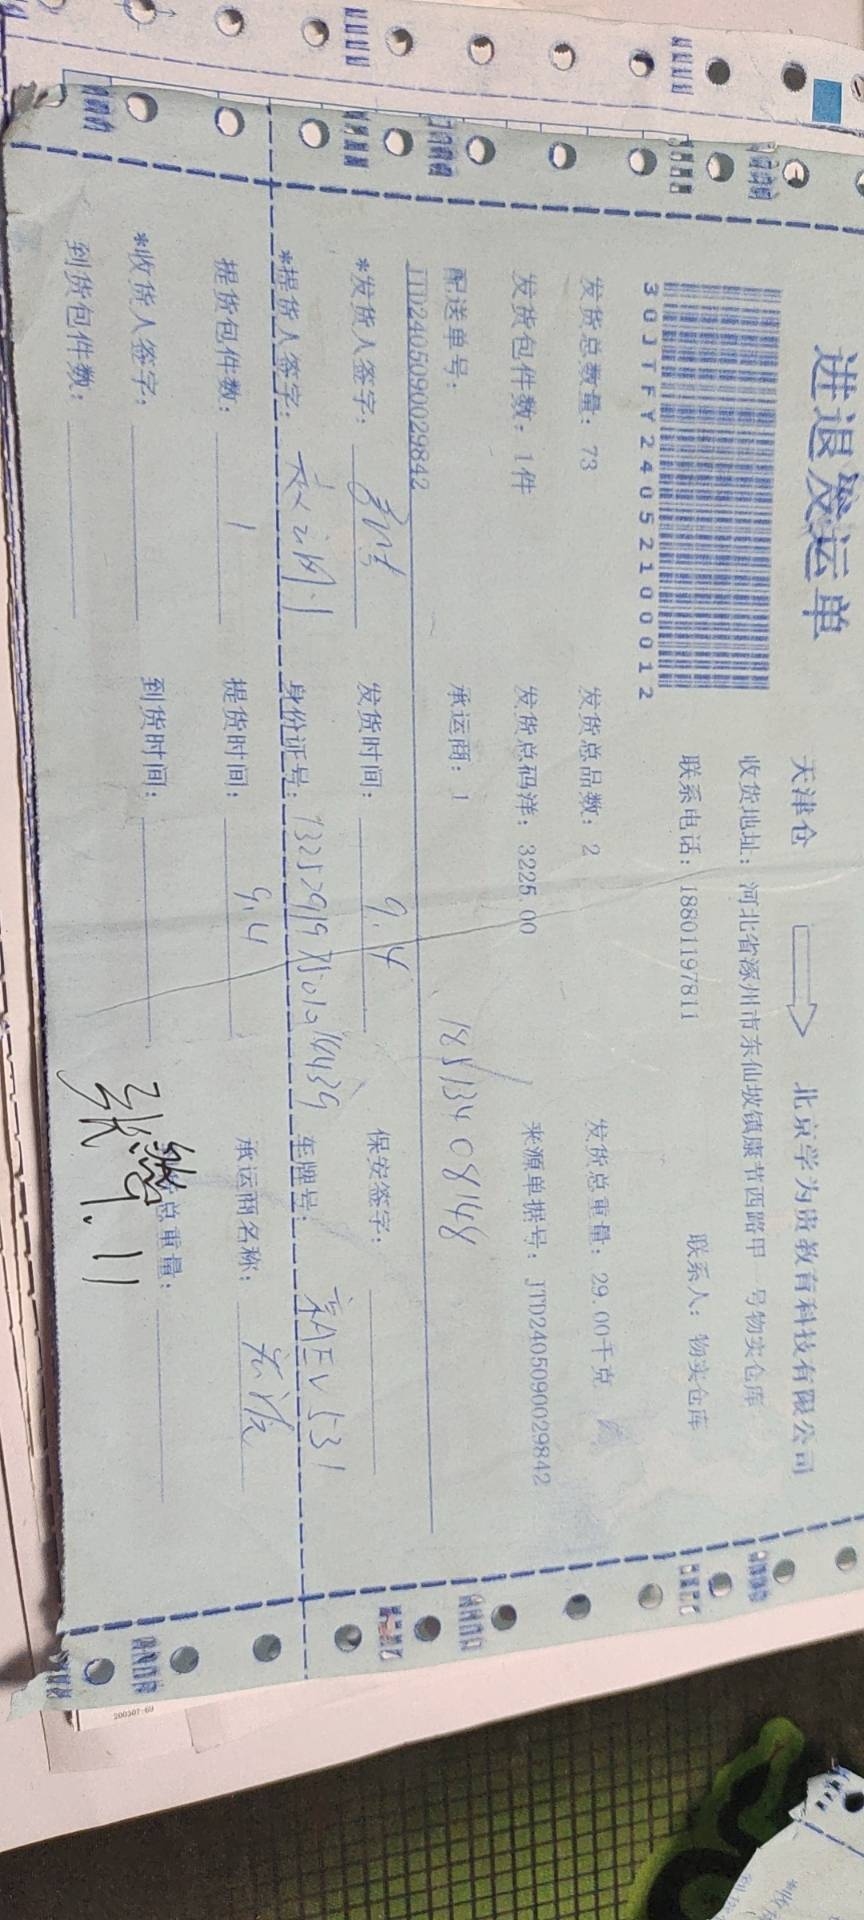 进退发运单
天津仓 北京学为贵教育科技有限公司
收货地址：河北省涿州市东仙坡镇康节西路甲一号物实仓库
30JTFY2405210001​2 联系电话：18801197811 联系人：物实仓库
发货总数量：73 发货总品数：2 发货总重量：29.00千克
发货包件数：1件 发货总码洋：3225.00 来源单据号：JTD2405090029842
配送单号： 承运商：1 18513408148
JTD2405090029842
*发货人签字： 发货时间：9.4 保安签字：
*提货人签字： 身份证号： 车牌号：
提货包件数：1 提货时间：9.4 承运商名称：
*收货人签字： 到货时间： 总重量：
到货包件数： 9.11
200307-60